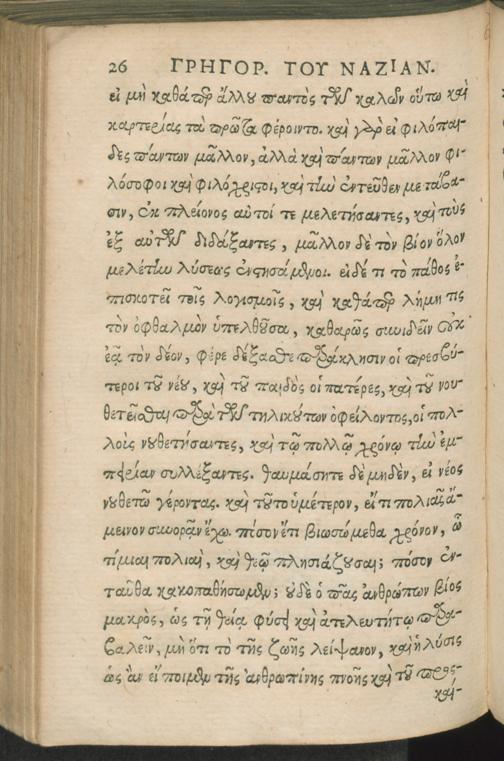 26 ΓΡΗΓΟΡ. ΤΟΥ ΝΑΖΙΑΝ.
εἰ μὴ καθάπερ ἄλλου παντὸς τῶν καλῶν οὕτω καὶ
καρτερίας τὰ πρῶτα φέροιντο. καὶ γὰρ εἰ φιλόπαι-
δες πάντων μᾶλλον, ἀλλὰ καὶ πάντων μᾶλλον φι-
λόσοφοι καὶ φιλόχριστοι, καὶ τὴν ἐντεῦθεν μετάβα-
σιν, ἐκ πλείονος αὐτοί τε μελετήσαντες, καὶ τοὺς
ἐξ αὐτῶν διδάξαντες, μᾶλλον δὲ τὸν βίον ὅλον
μελέτην λύσεως ἐνστησάμενοι. εἰ δέ τι τὸ πάθος ἐ-
πισκοτεῖ τοῖς λογισμοῖς, καὶ καθάπερ λήμη τις
τὸν ὀφθαλμὸν ὑπελθοῦσα, καθαρῶς συνιδεῖν οὐκ
ἐᾷ τὸν δέον, φέρε δέξασθε παράκλησιν οἱ πρεσβύ-
τεροι τοῦ νέου, καὶ τοῦ παιδὸς οἱ πατέρες, καὶ τοῦ νου-
θετεῖσθαι παρὰ τῶν τηλικούτων ὀφείλοντος, οἱ πολ-
λοὺς νουθετήσαντες, καὶ τῷ πολλῷ χρόνῳ τὴν ἐμ-
πειρίαν συλλέξαντες. θαυμάσητε δὲ μηδὲν, εἰ νέος
νουθετῶ γέροντας. καὶ τοῦτο ὑμέτερον, εἴ τι πολιᾶς ἄ-
μεινον συνορᾶν ἔχω. πόσον ἔτι βιωσόμεθα χρόνον, ὦ
τίμιαι πολιαὶ, καὶ θεῷ πλησιάζουσαι; πόσον ἐν-
ταῦθα κακοπαθήσωμεν; οὐδὲ ὁ πᾶς ἀνθρώπων βίος
μακρὸς, ὡς τῇ θείᾳ φύσει καὶ ἀτελευτήτῳ παρα-
βαλεῖν, μὴ ὅτι τὸ τῆς ζωῆς λείψανον, καὶ ἡ λύσις
ὡς ἂν εἴποιμεν τῆς ἀνθρωπίνης πνοῆς καὶ τοῦ προς-
καί-